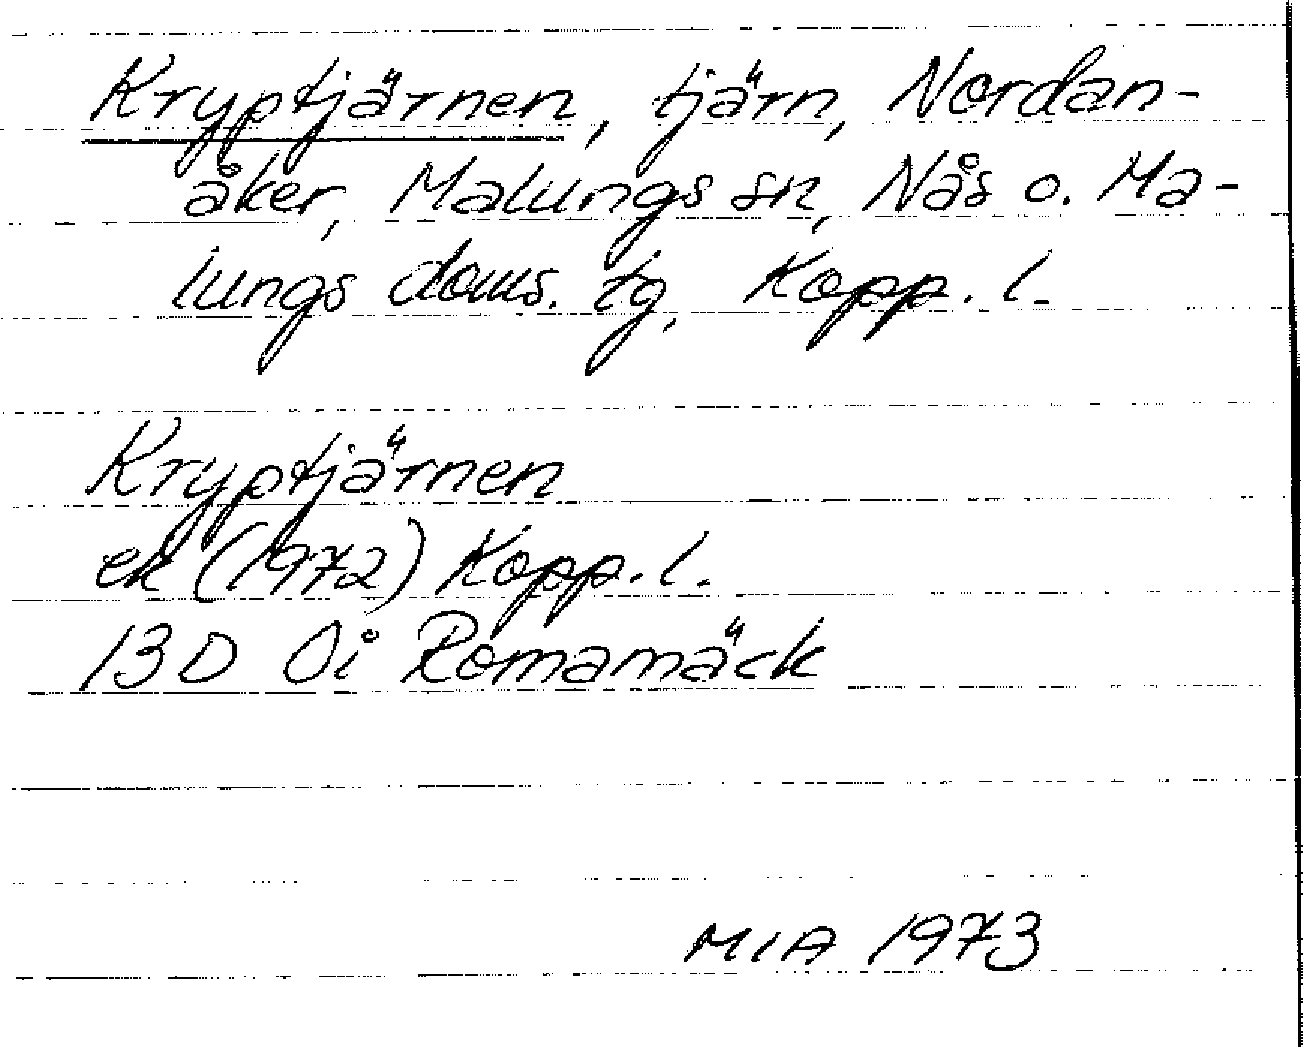 Kryptjärnen, tjärn, Nordan-
åker, Malungs sn, Nås o. Ma-
lungs doms. tg, Kopp. l.
Kryptjärnen
ek (1972) Kopp. l.
13D 0i Romamäck
MIA 1973